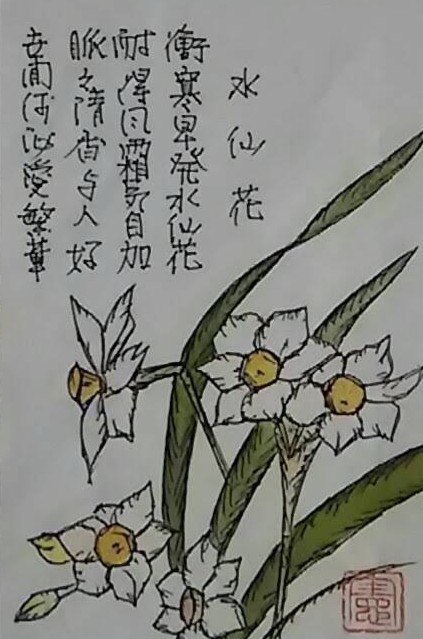 水仙花
衝寒早発水仙花
耐得風霜節自加
脈々清香与人好
世間何必愛繁華